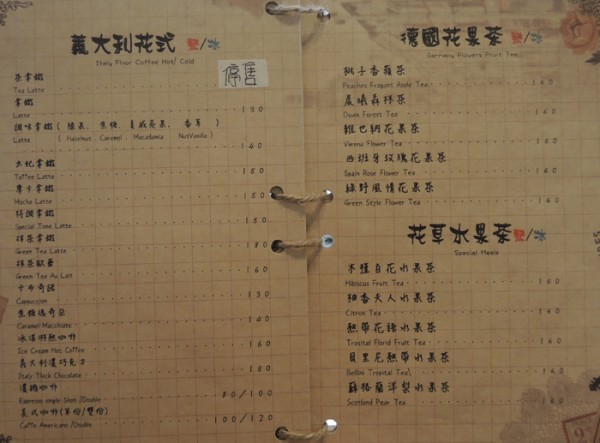 義大利花式 熱/冰
Italy Flour Coffee Hot/ Cold
停售
茶拿鐵
Tea Latte
拿鐵
Latte 130
調味拿鐵 ( 榛果、焦糖、夏威夷果、香草 )
Latte ( Hazelnut、Caramel、Macadamia、NutVanilla ) 140
太妃拿鐵
Toffee Latte 150
摩卡拿鐵
Mocha Latte 150
特調拿鐵
Special Tone Latte 150
抹茶拿鐵
Green Tea Latte 180
抹茶歐蕾
Green Tea Au Lait 160
卡布奇諾
Cappuccion 130
焦糖瑪奇朵
Caramel Macchiate 140
冰淇淋熱咖啡
Ice Cream Hot Coffee 160
義大利濃巧克力
Italy Thick Chocolate 180
濃縮咖啡
Espresso single Shot /Double 80/100
美式咖啡(單份/雙份)
Caffe Americano /Double 100/120
德國花果茶 熱/冰
Germany Flowers Fruit Tea
桃子香蘋茶
Peaches Fragant Apple Tea 160
晨曦森林茶
Dawn Forest Tea 160
維也納花果茶
Vienna Flower Tea 160
西班牙玫瑰花果茶
Spain Rose Flower Tea 160
綠野風情花果茶
Green Style Flower Tea 160
花草水果茶 熱/冰
Special Meals
木槿百花水果茶
Hibiscus Fruit Tea 160
柚香夫人水果茶
Citron Tea 160
熱帶花語水果茶
Trocital Florid Fruit Tea 160
貝里尼熱帶水果茶
Bellini Tropital Tea\ 160
蘇格蘭洋梨水果茶
Scotland Pear Tea 160